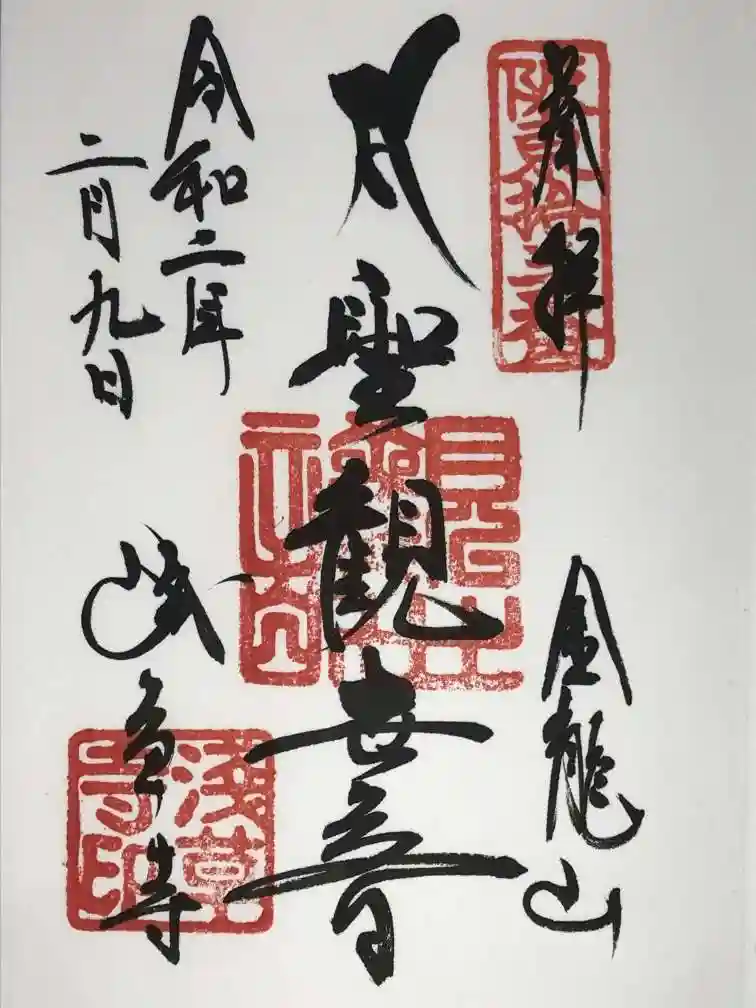 奉拝
坂東拾三番
金龍山
聖観世音
観世音印
令和二年
二月九日
浅草寺
淺草寺印